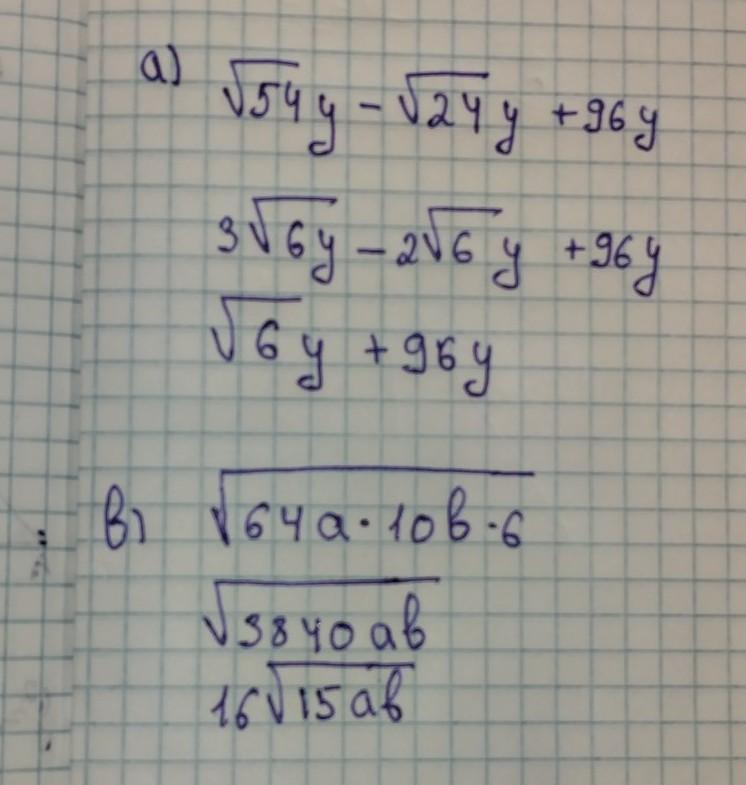 а) √54 y − √24 y + 96y
3√6y − 2√6 y + 96y
√6 y + 96y
в) √64a · 10b · 6
√3840ab
16√15ab